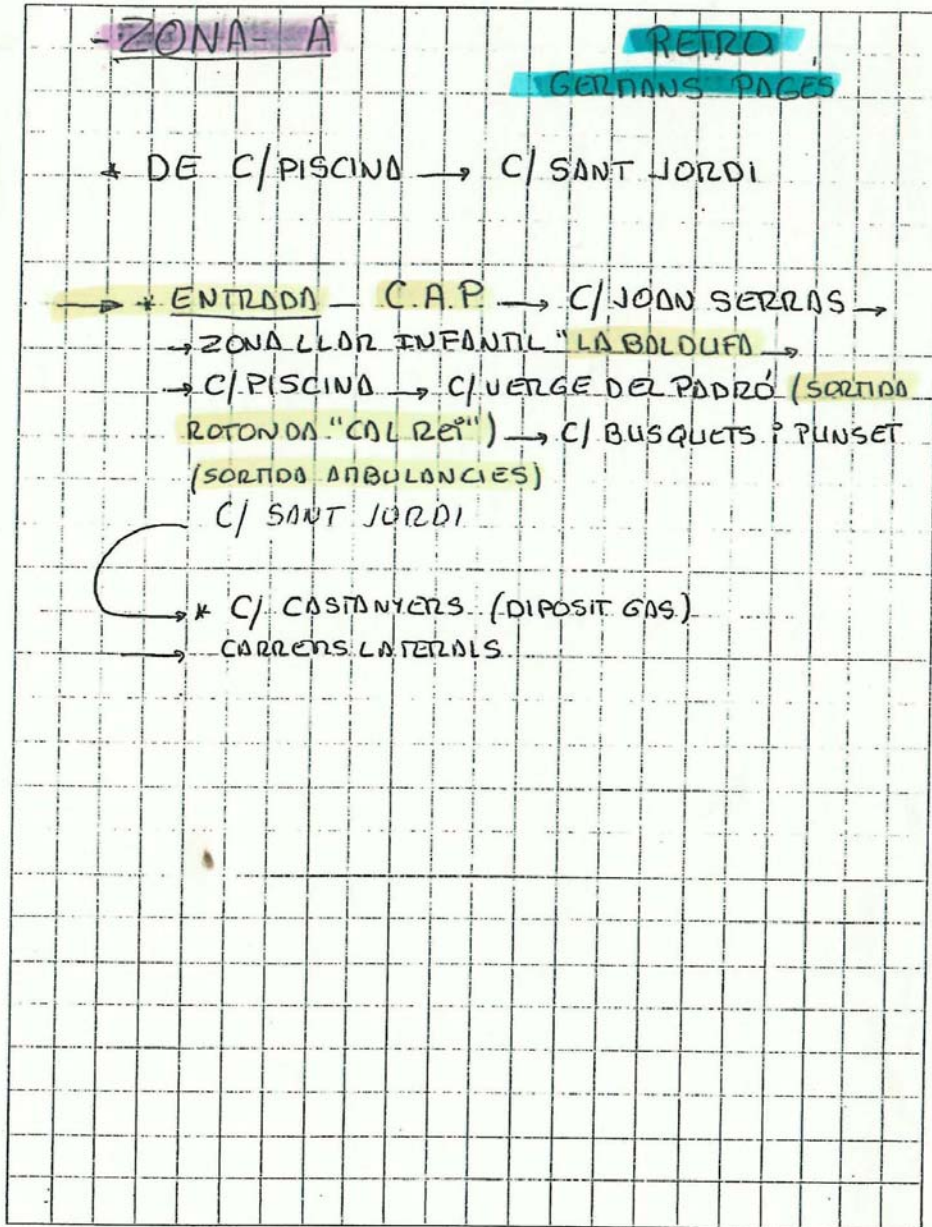 - ZONA - A
RETRO
GERMANS PAGÈS
* DE C/ PISCINA → C/ SANT JORDI
→ * ENTRADA - C.A.P. → C/ JOAN SERRAS →
→ ZONA LLAR INFANTIL "LA BALDUFA →
→ C/ PISCINA → C/ VERGE DEL PADRÓ (SORTIDA
ROTONDA "CAL REI") → C/ BUSQUETS i PUNSET
(SORTIDA AMBULANCIES)
C/ SANT JORDI
→ * C/ CASTANYERS (DIPOSIT GAS)
→ CARRERS LATERALS